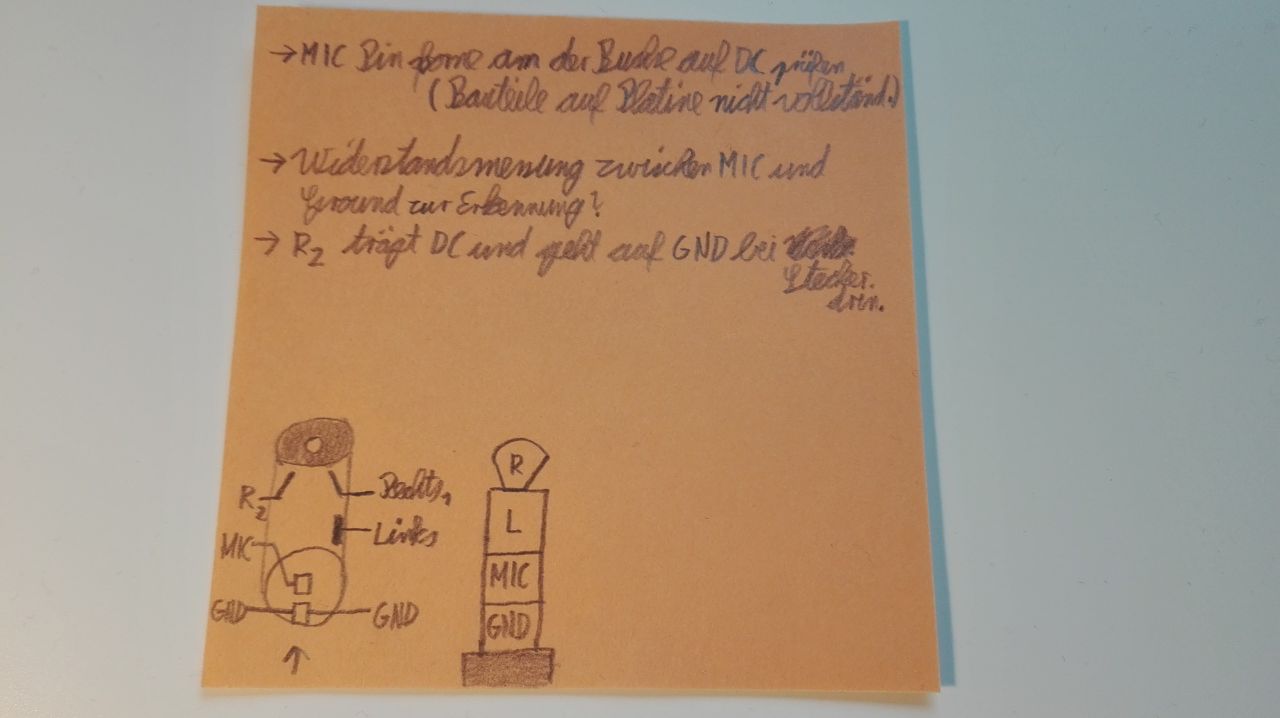 → MIC Pin vorne an der Buchse auf DC prüfen
(Bauteile auf Platine nicht vollständ.)
→ Widerstandsmessung zwischen MIC und
Ground zur Erkennung?
→ R2 trägt DC und geht auf GND bei
Stecker.
drin.
R
R2
Rechts1
L
Links
MIC
MIC
GND
GND
GND